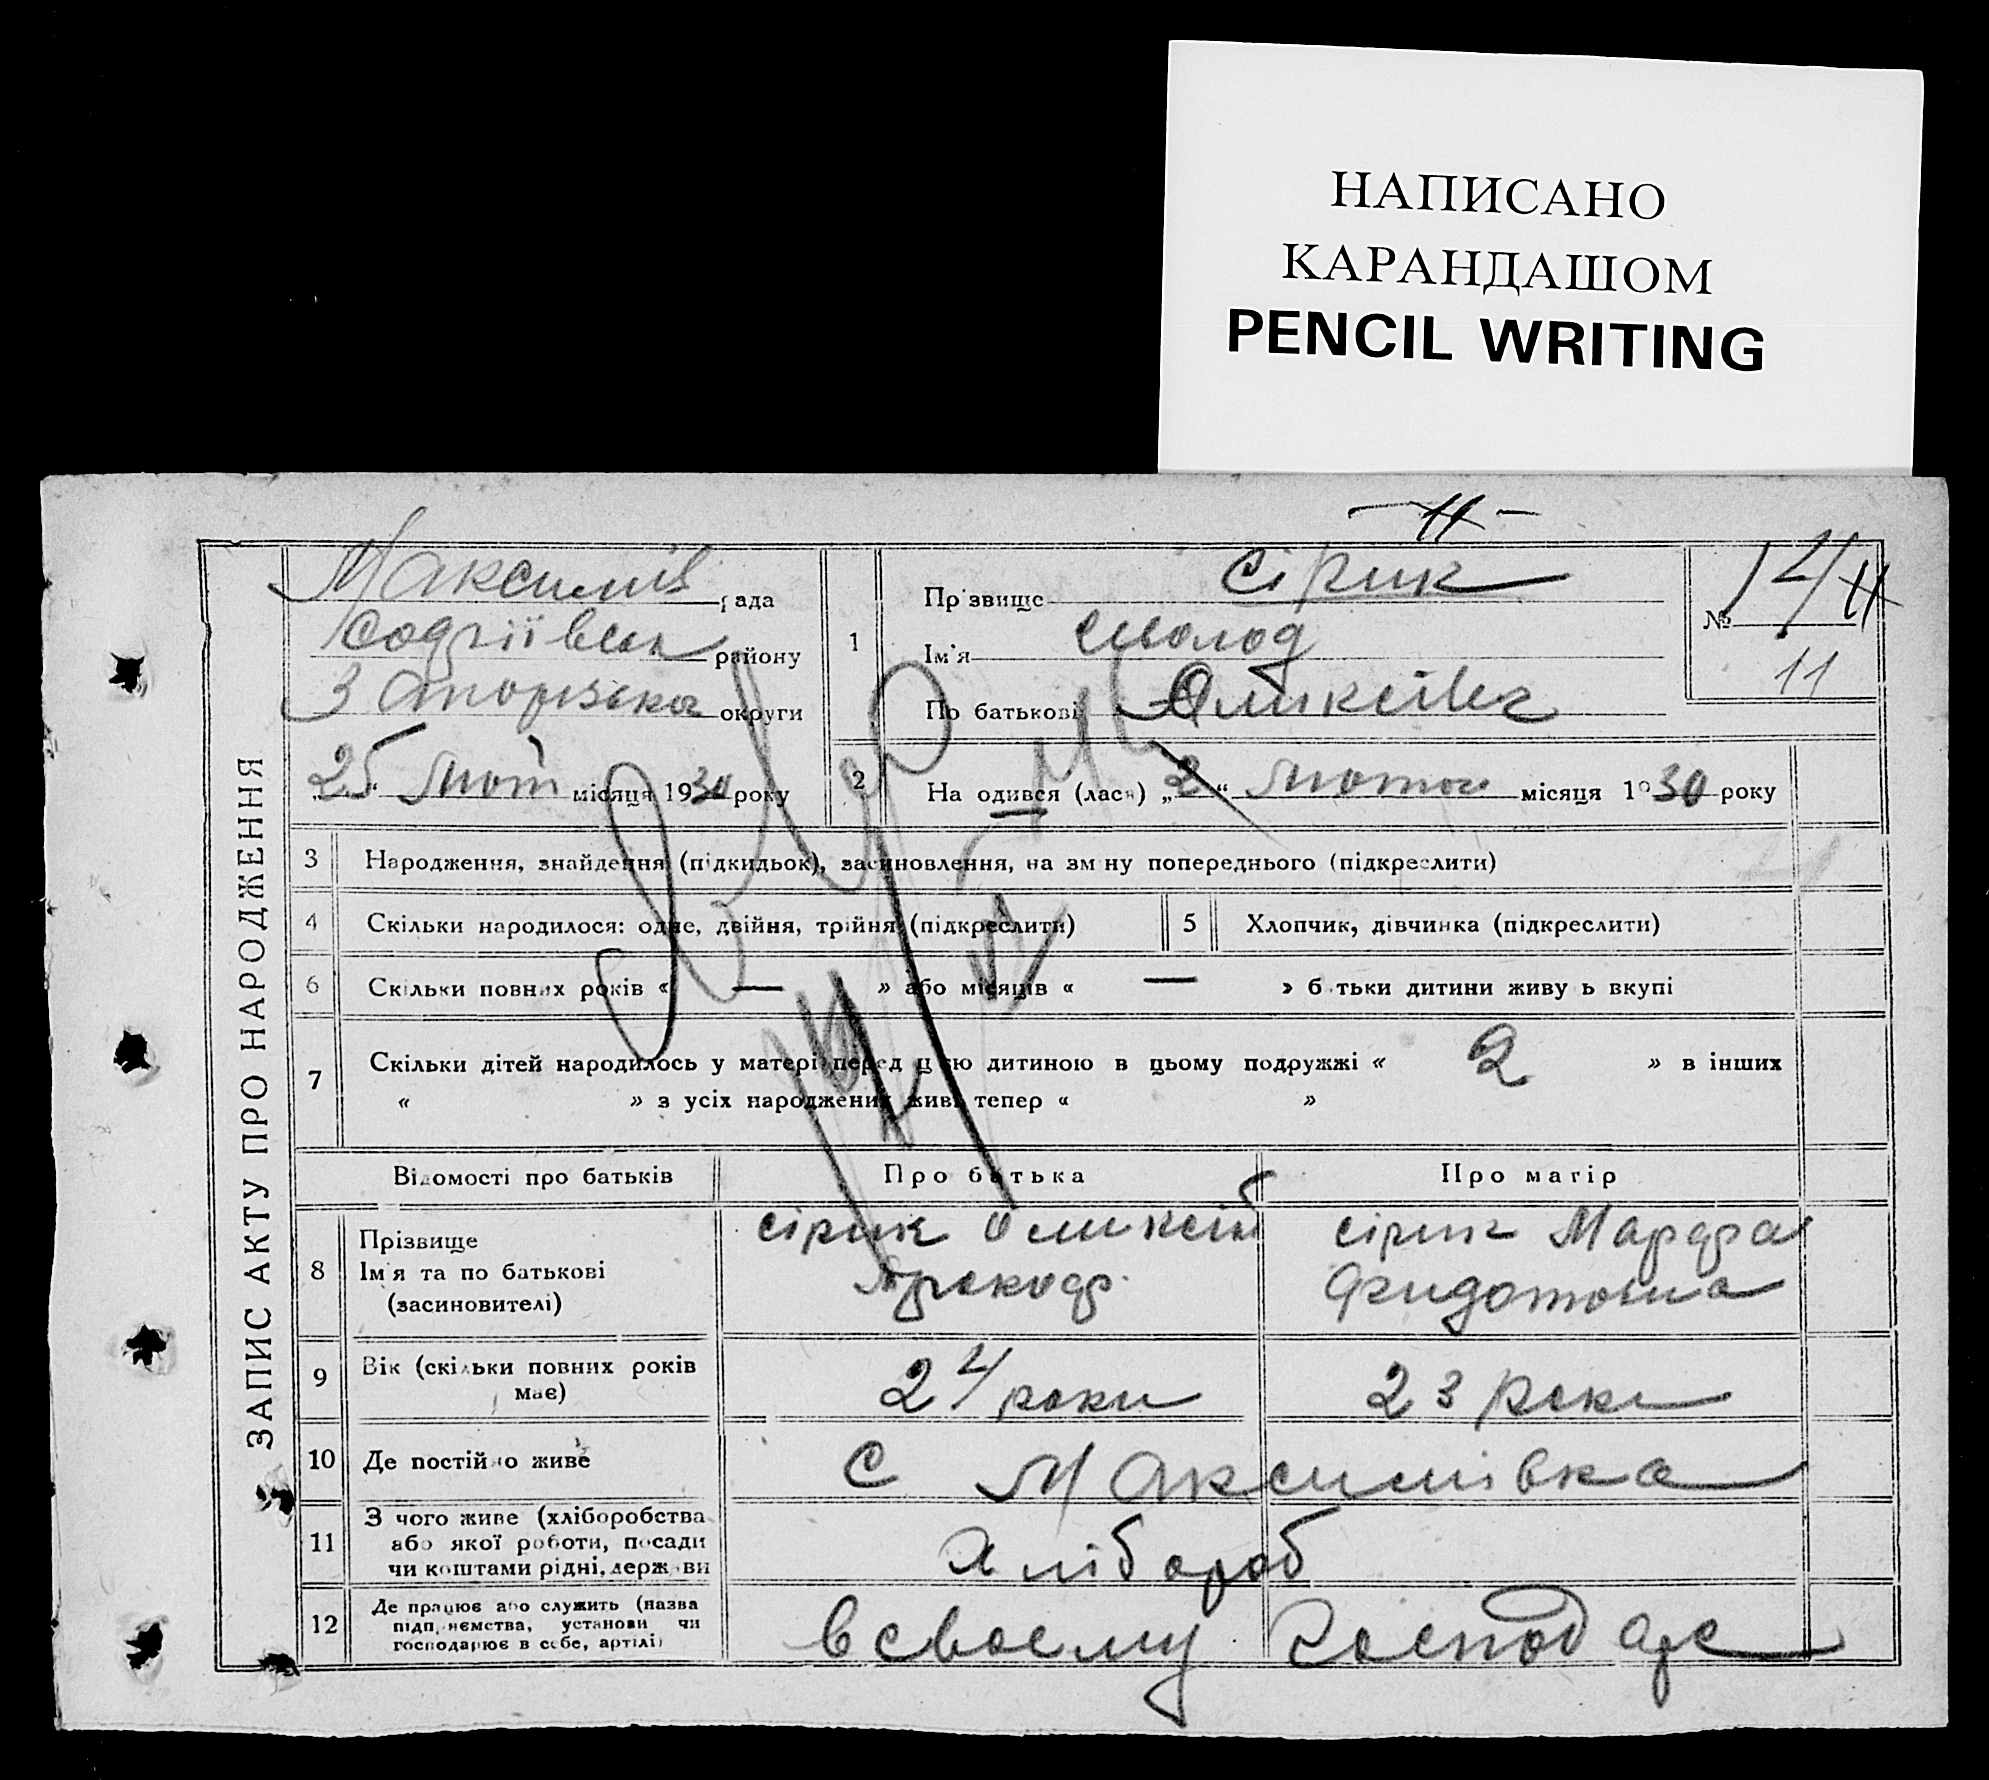 НАПИСАНО
КАРАНДАШОМ
PENCIL WRITING
ЗАПИС АКТУ ПРО НАРОДЖЕННЯ
Максимів рада
району
округи
25 Лют місяця 1930 року
11
1
Прізвище Сірик
Ім'я
По батькові
№ 14
11
2 На одився (лася) „2“ Лютог місяця 1930 року
3 Народження, знайдення (підкидьок), засиновлення, на зміну попереднього (підкреслити)
4 Скільки народилося: одне, двійня, трійня (підкреслити) 5 Хлопчик, дівчинка (підкреслити)
6 Скільки повних років « — » або місяців « — » батьки дитини живуть вкупі
7 Скільки дітей народилось у матері перед цією дитиною в цьому подружжі « 2 » в інших
« » з усіх народжених живі тепер « »
Відомості про батьків Про батька Про матір
8 Прізвище
Ім'я та по батькові
(засиновителі)
сірик Оликсій
Прокоф.
сірик Марфа
Фидотовна
9 Вік (скільки повних років має) 24 роки 23 роки
10 Де постійно живе С Максимівка
11 З чого живе (хліборобства
або якої роботи, посади
чи коштами рідні, держави
Хлібороб
12 Де працює або служить (назва
підприємства, установи чи
господарює в себе, артілі)
в своему Господарс